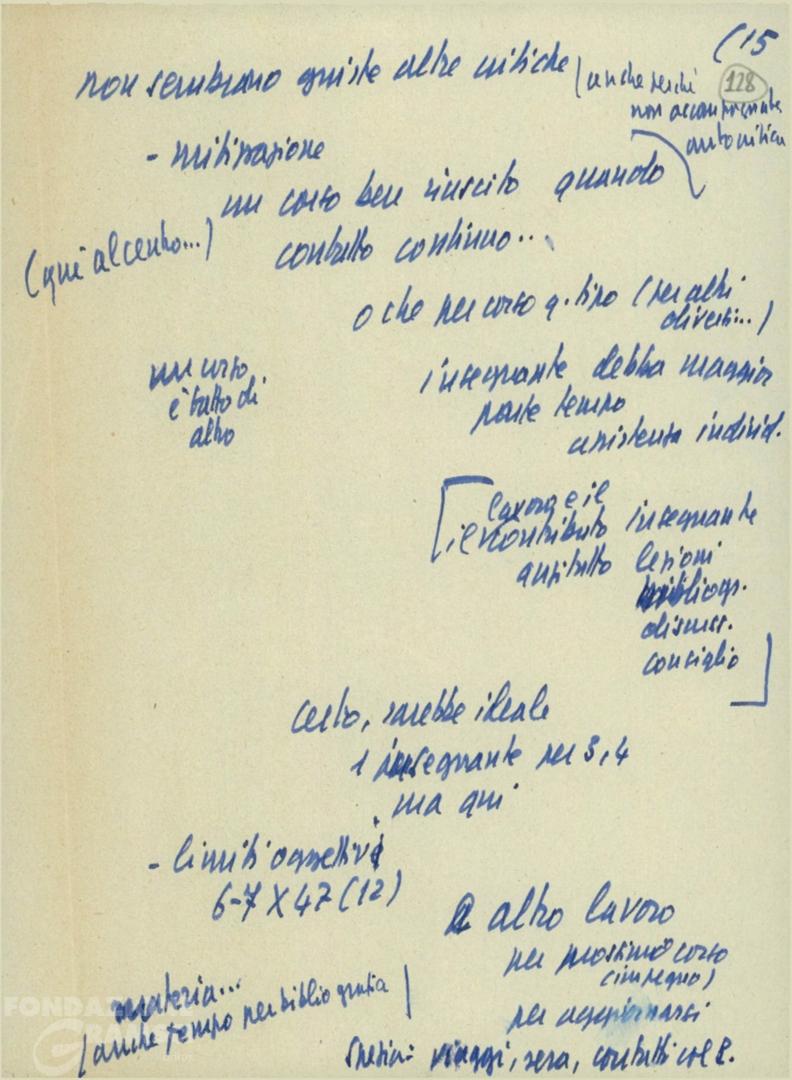 (15
128
non sembrano giuste altre critiche (anche perché
non accompagnate
autocritica
- mitizzazione
un corso ben riuscito quando
(qui al centro...)
contatto continuo...
o che per corso q. tipo (per altri
diversi...)
un corso
è fatto di
altro
insegnante debba maggior
parte tempo
assistenza individ.
[lavoro e il
il contributo insegnante
anzitutto lezioni
bibliogr.
discuss.
consiglio]
certo, sarebbe ideale
1 insegnante per 3, 4
ma qui
- limiti oggettivi
6-7 X 47 (12)
altro lavoro
per prossimo corso
(impegno)
materia...
(anche tempo per bibliografia)
per aggiornarsi
viaggi, sera, contatti col P.
FONDAZIONE
GRAMSCI